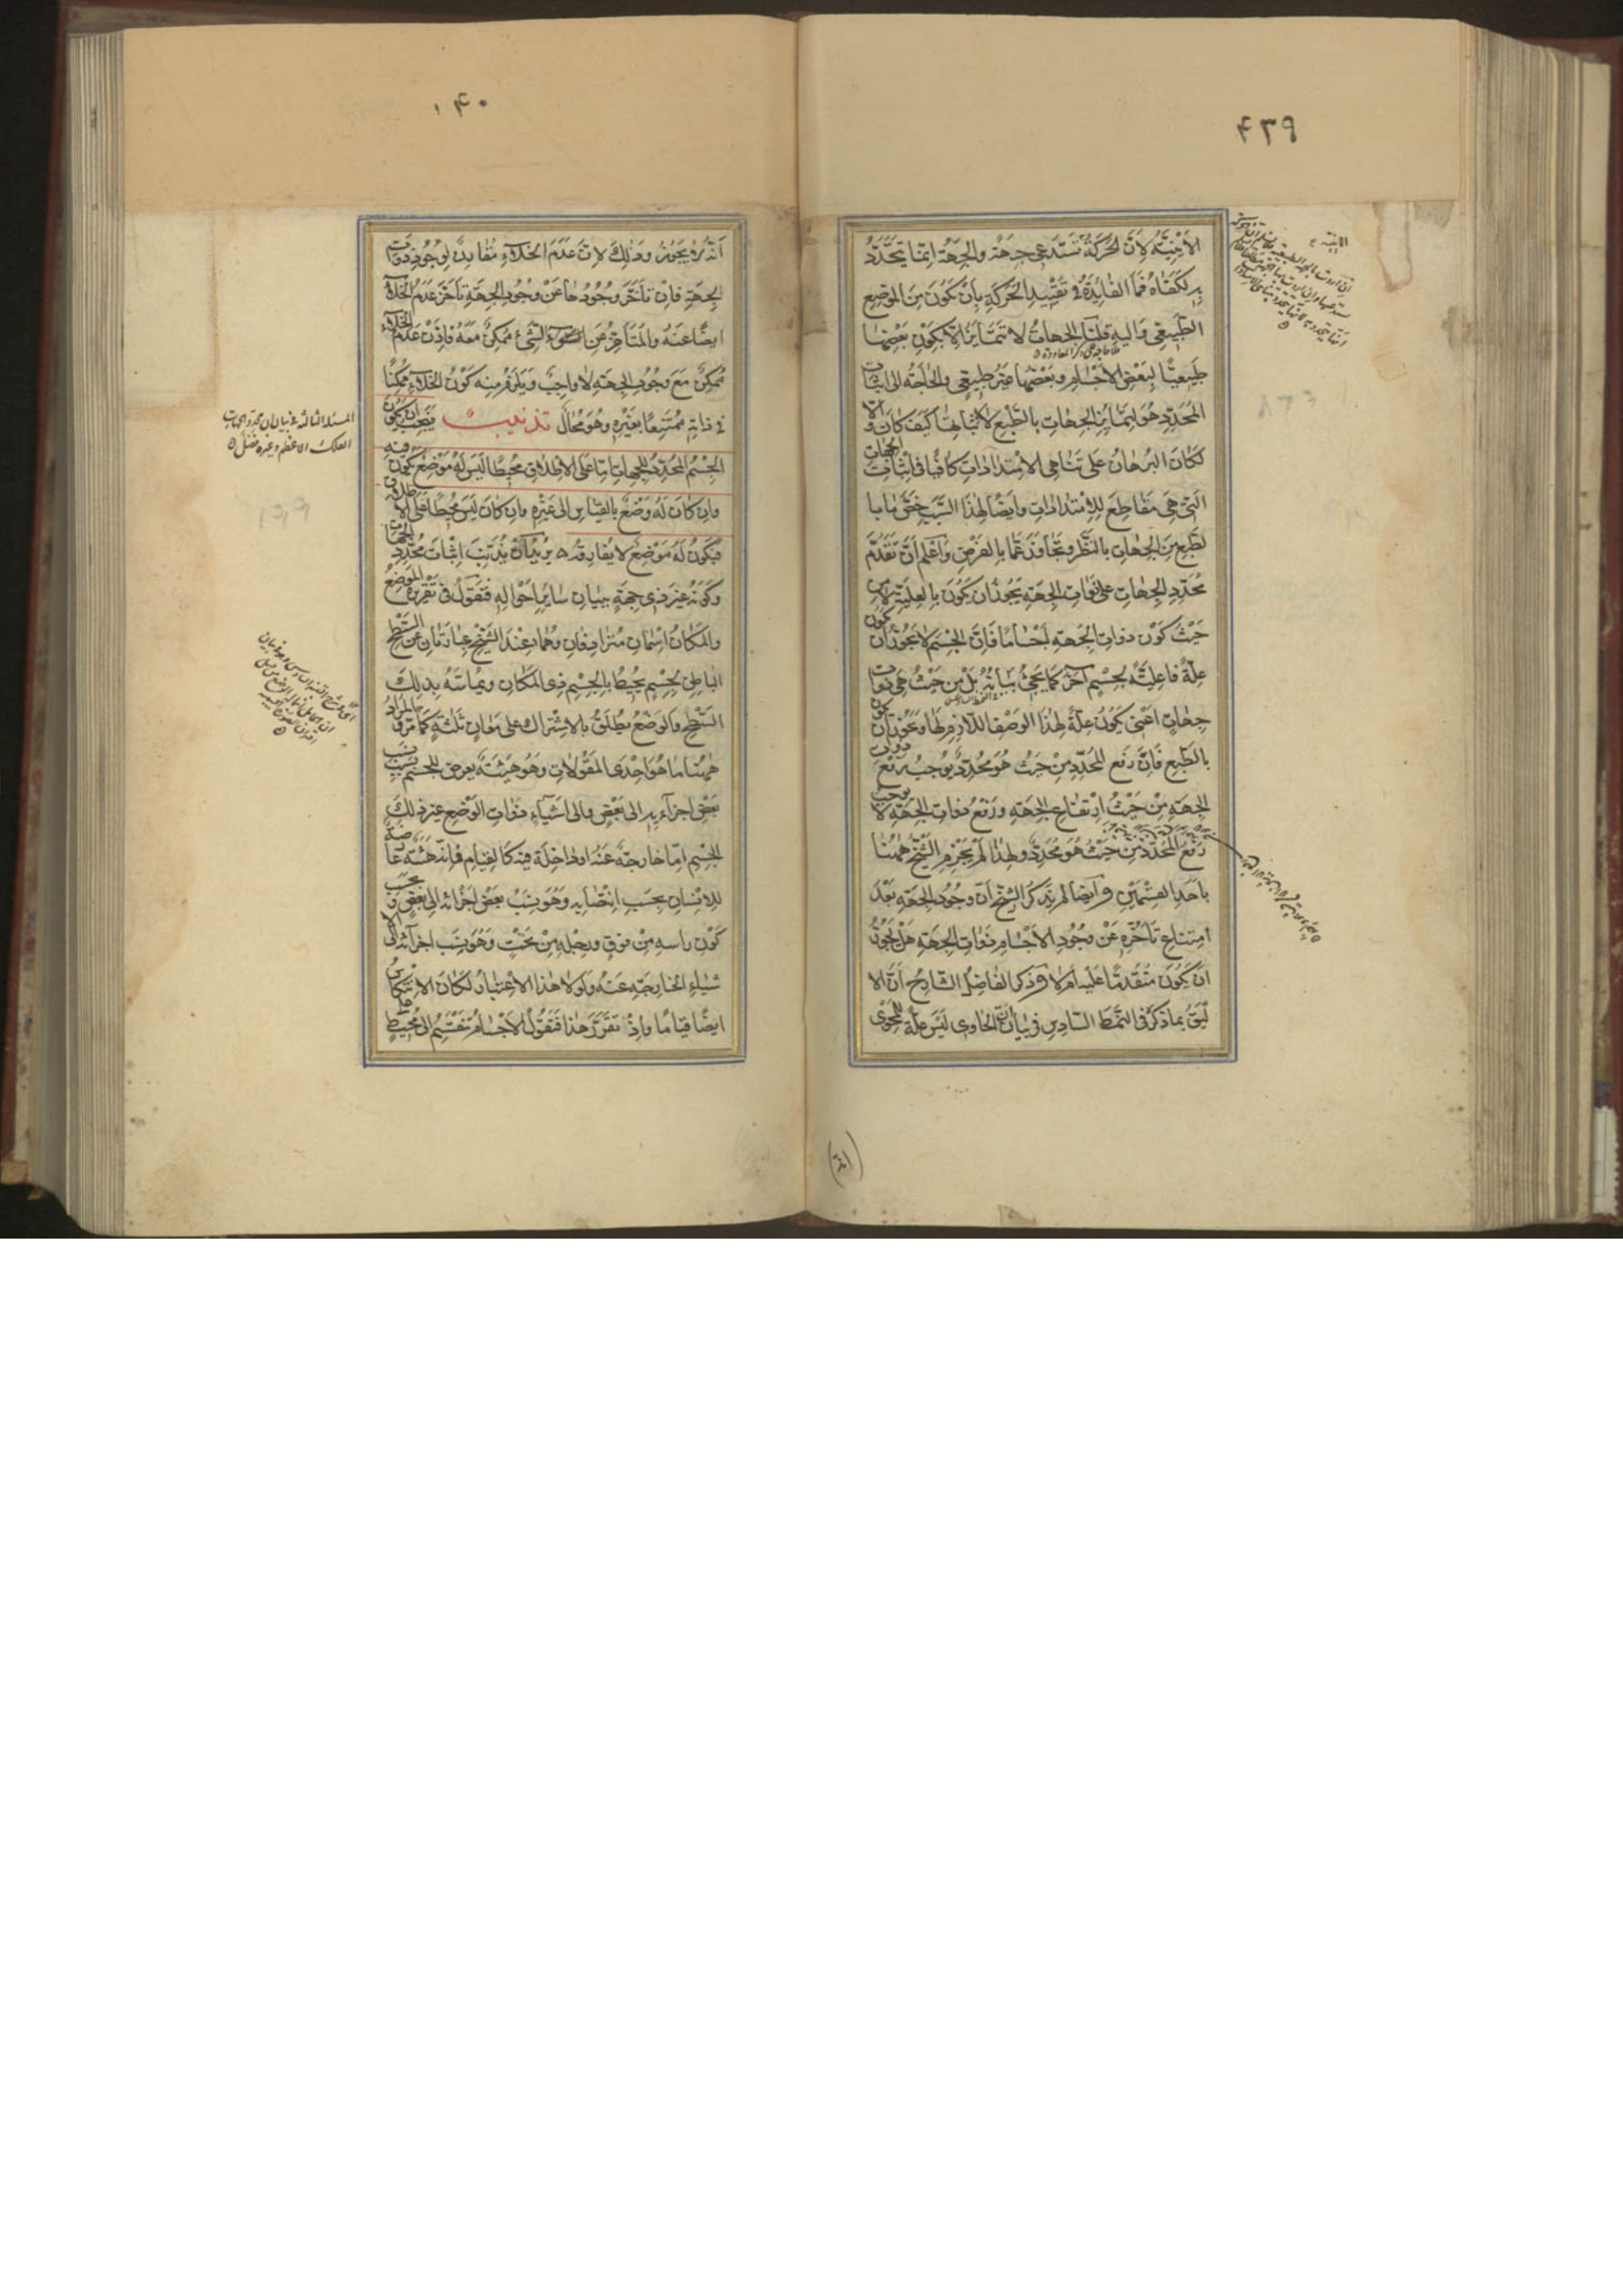 ٤٣٩
الأينية لأن الحركة تستدعي جهة والجهة إنما يتحدد
به لكفاه فما الفائدة في تقييد الحركة بأن تكون من الموضع
الطبيعي وإليه قلنا الجهات لا تتمايز إلا بكون بعضها
طبيعيا لبعض الأجسام وبعضها غير طبيعي والحاجة إلى إثبات
المحدد هو لتمايز الجهات بالطبع لا لإثباتها كيف كان وإلا
لكان البرهان على تناهي الامتدادات كافيا في إثبات الجهات
التي هي مقاطع للامتدادات وأيضا لهذا السبب خص ما با
لطبع من الجهات بالنظر وتجاوز عما بالفرض واعلم أن تقدم
محدد الجهات على ذوات الجهة يجوز أن يكون بالعلية لا من
حيث كون ذوات الجهة أجساما فإن الجسم لا يجوز أن يكون
علة فاعلية لجسم آخر كما يجيء بيانه بل من حيث هي ذوات
جهات أعني يكون علة لهذا الوصف اللازم لها ويجوز أن يكون
بالطبع فإن رفع المحدد من حيث هو محدد يوجب رفع ذوات
الجهة من حيث ارتفاع الجهة ورفع ذوات الجهة لا يوجب
رفع المحدد من حيث هو محدد ولهذا لم يجزم الشيخ ههنا
بأحد القسمين وأيضا لم يذكر الشيخ أن وجود الجهة بعد
امتناع تأخره عن وجود الأجسام ذوات الجهة هل يجوز
أن يكون متقدما عليه أم لا وذكر الفاضل الشارح أن الا
ليق بما ذكر في النمط السادس في بيان أن الحاوي ليس علة للمحوي
٤٠
أنه لا يجوز وذلك لأن عدم الخلاء مقارن لوجود ذوات
الجهة فإن تأخر وجودها عن وجود الجهة تأخر عدم الخلاء
أيضا عنه والمتأخر عن الشيء ممكن معه فإذن عدم الخلاء
ممكن مع وجود الجهة لا واجب ويلزم منه كون الخلاء ممكنا
في ذاته ممتنعا بغيره وهو محال تذنيب فيجب أن يكون
الجسم المحدد للجهات إما على الإطلاق محيطا ليس له موضع يكون فيه
وإن كان له وضع بالقياس إلى غيره وإن كان ليس محيطا على الإطلاق
فيكون له موضع لا يفارقه يريد أن يذنب إثبات محدد الجهات
وكونه غير ذي جهة ببيان سائر أحواله فنقول في تقريره الموضع
والمكان اسمان مترادفان وهما عند الشيخ عبارتان عن السطح
الباطن لجسم يحيط بالجسم ذي المكان ويماسه بذلك
السطح والوضع يطلق بالاشتراك على معان ثلثة كما مر والمراد
ههنا ما هو إحدى المقولات وهو هيئة يعرض للجسم بسبب نسب
بعض أجزاءه إلى بعض وإلى أشياء ذوات الوضع غير ذلك
الجسم إما خارجة عنه أو داخلة فيه كالقيام فإنه هيئة عارضة
للإنسان بحسب انتصابه وهو نسب بعض أجزائه إلى بعض وبحسب
كون رأسه من فوق ورجله من تحت وهو نسب أجزائه إلى الا
شياء الخارجة عنه ولولا هذا الاعتبار لكان الانتكاس
أيضا قياما وإذ تقرر هذا فنقول الأجسام تنقسم إلى محيط
المسئلة الثالثة في بيان أن محدد الجهات
الفلك الأعظم